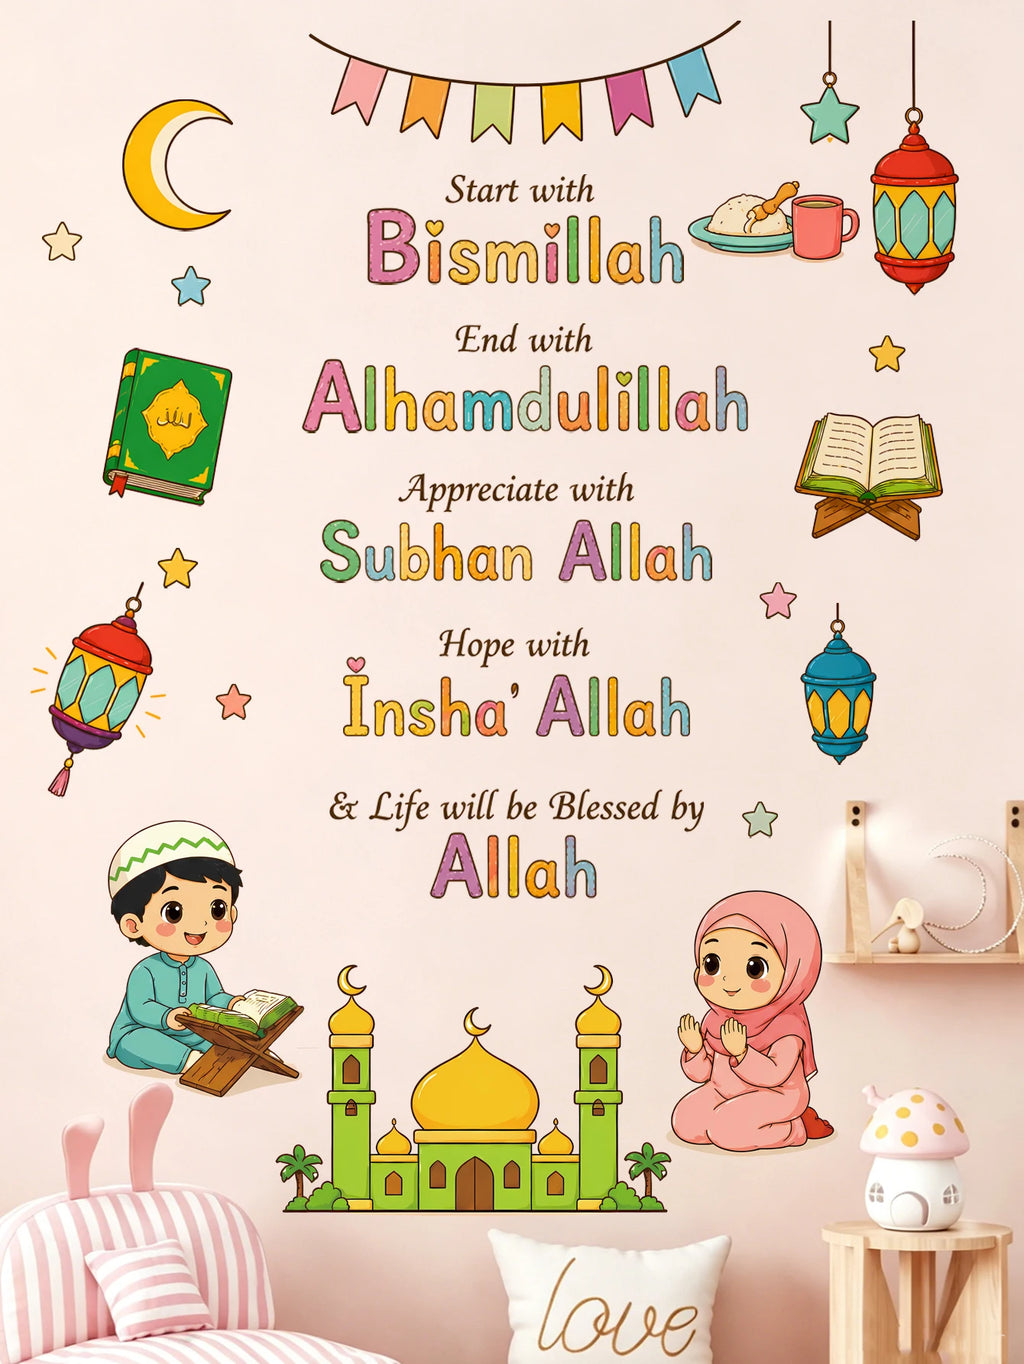 Start with
Bismillah
End with
Alhamdulillah
Appreciate with
Subhan Allah
Hope with
Insha' Allah
& Life will be Blessed by
Allah
love